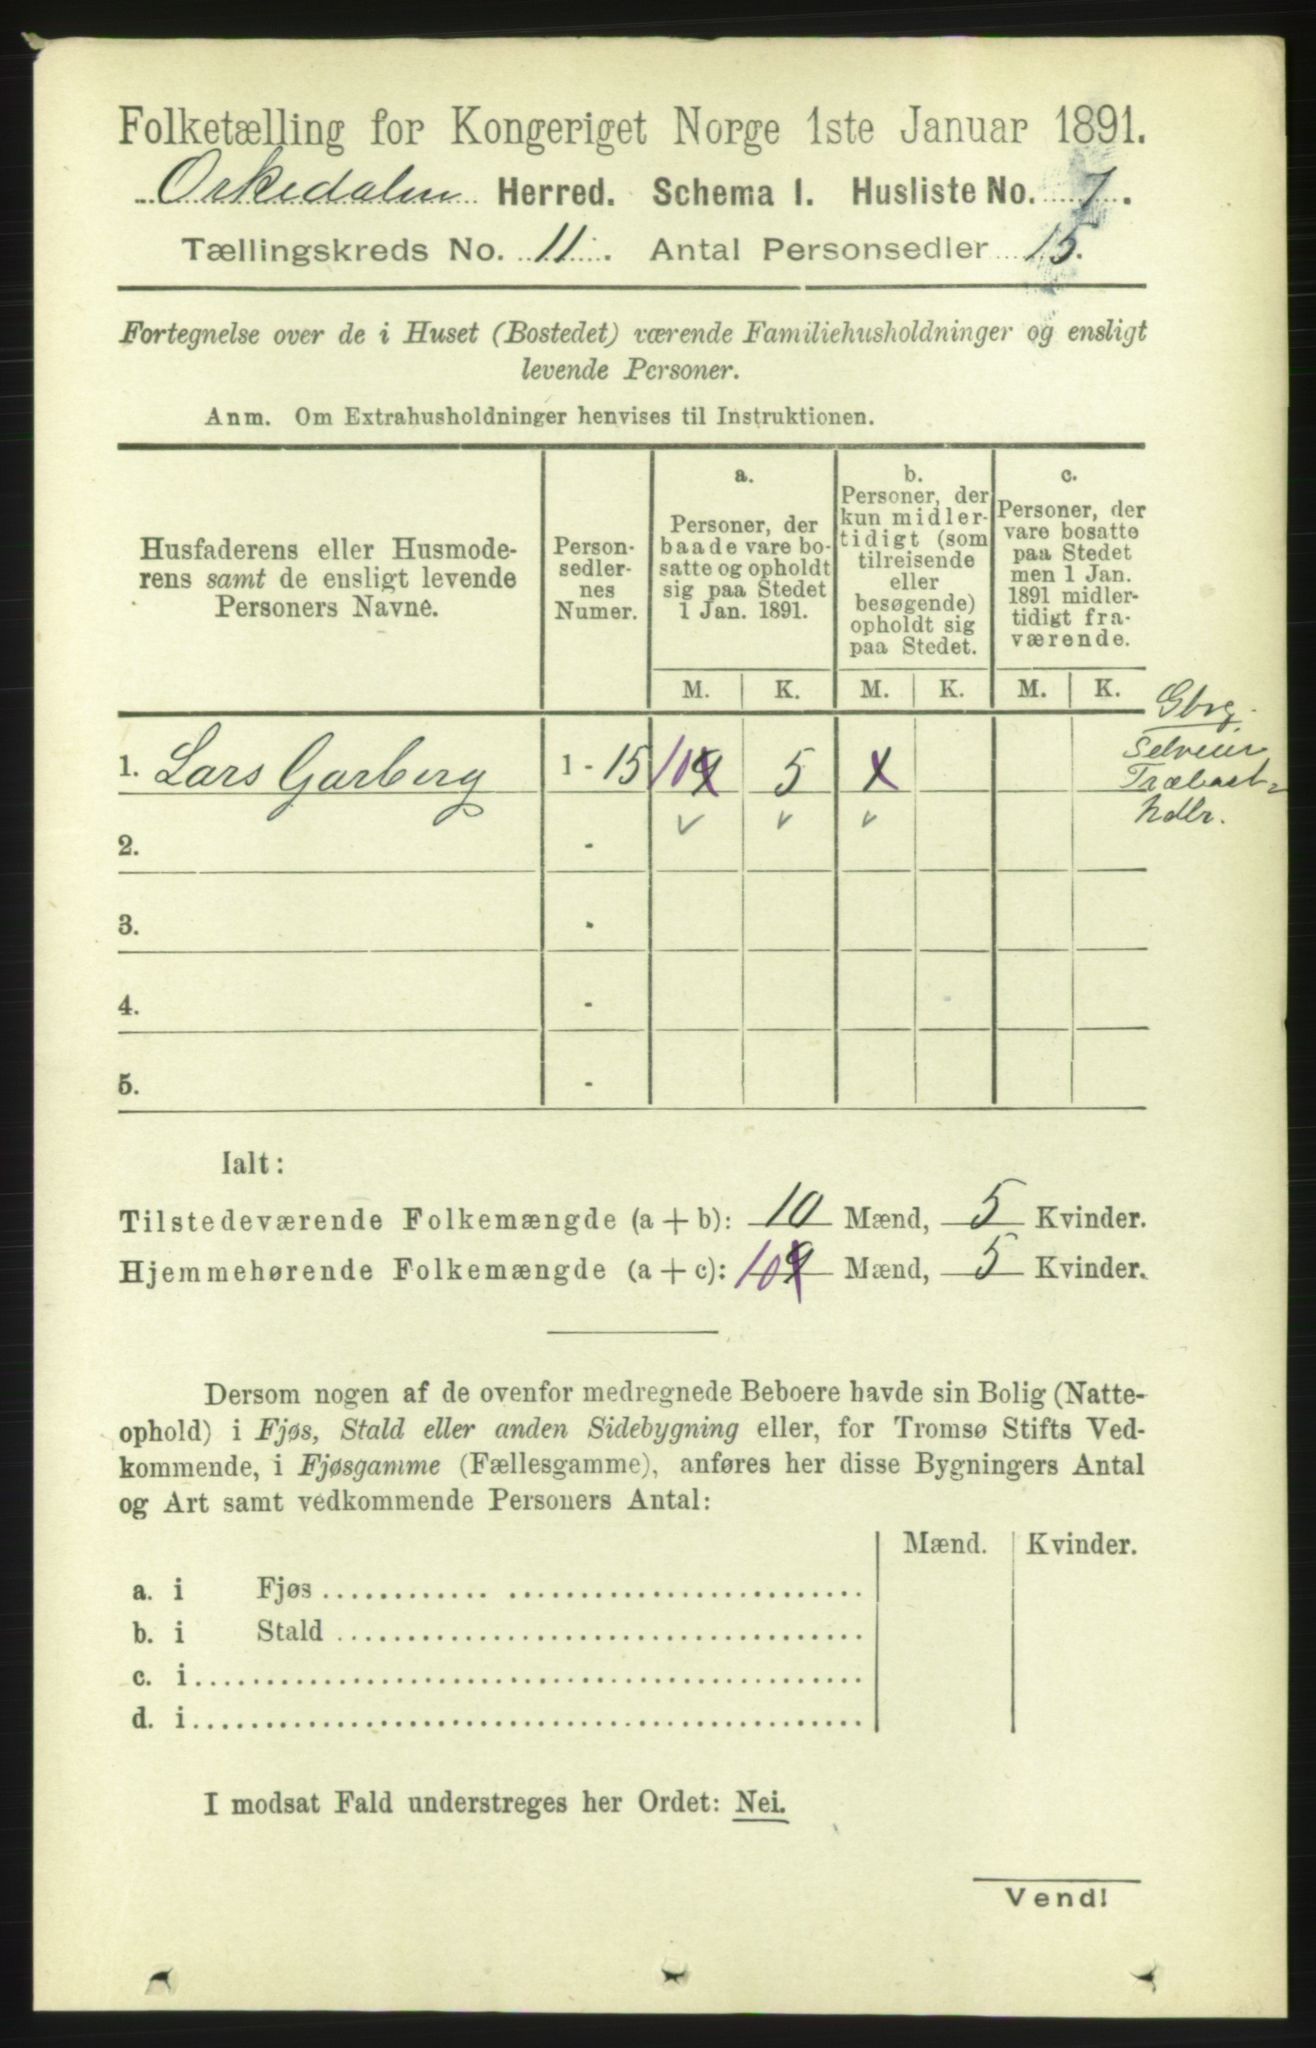 Folketælling for Kongeriget Norge 1ste Januar 1891.
Orkedalen Herred. Schema I. Husliste No. 7.
Tællingskreds No. 11. Antal Personsedler 15.
Fortegnelse over de i Huset (Bostedet) værende Familiehusholdninger og ensligt
levende Personer.
Anm. Om Extrahusholdninger henvises til Instruktionen.
Husfaderens eller Husmode-
rens samt de ensligt levende
Personers Navne.
Person-
sedler-
nes
Numer.
a.
Personer, der
baade vare bo-
satte og opholdt
sig paa Stedet
1 Jan. 1891.
b.
Personer, der
kun midler-
tidigt (som
tilreisende
eller
besøgende)
opholdt sig
paa Stedet.
c.
Personer, der
vare bosatte
paa Stedet
men 1 Jan.
1891 midler-
tidigt fra-
værende.
M. K. M. K. M. K.
1. Lars Garberg 1 - 15 10 9 5
Gbrg.
Selveier
Trælast-
hdlr.
2. -
3. -
4. -
5. -
Ialt:
Tilstedeværende Folkemængde (a + b): 10 Mænd, 5 Kvinder.
Hjemmehørende Folkemængde (a + c): 10 9 Mænd, 5 Kvinder.
Dersom nogen af de ovenfor medregnede Beboere havde sin Bolig (Natte-
ophold) i Fjøs, Stald eller anden Sidebygning eller, for Tromsø Stifts Ved-
kommende, i Fjøsgamme (Fællesgamme), anføres her disse Bygningers Antal
og Art samt vedkommende Personers Antal:
Mænd. Kvinder.
a. i Fjøs
b. i Stald
c. i
d. i
I modsat Fald understreges her Ordet: Nei.
Vend!